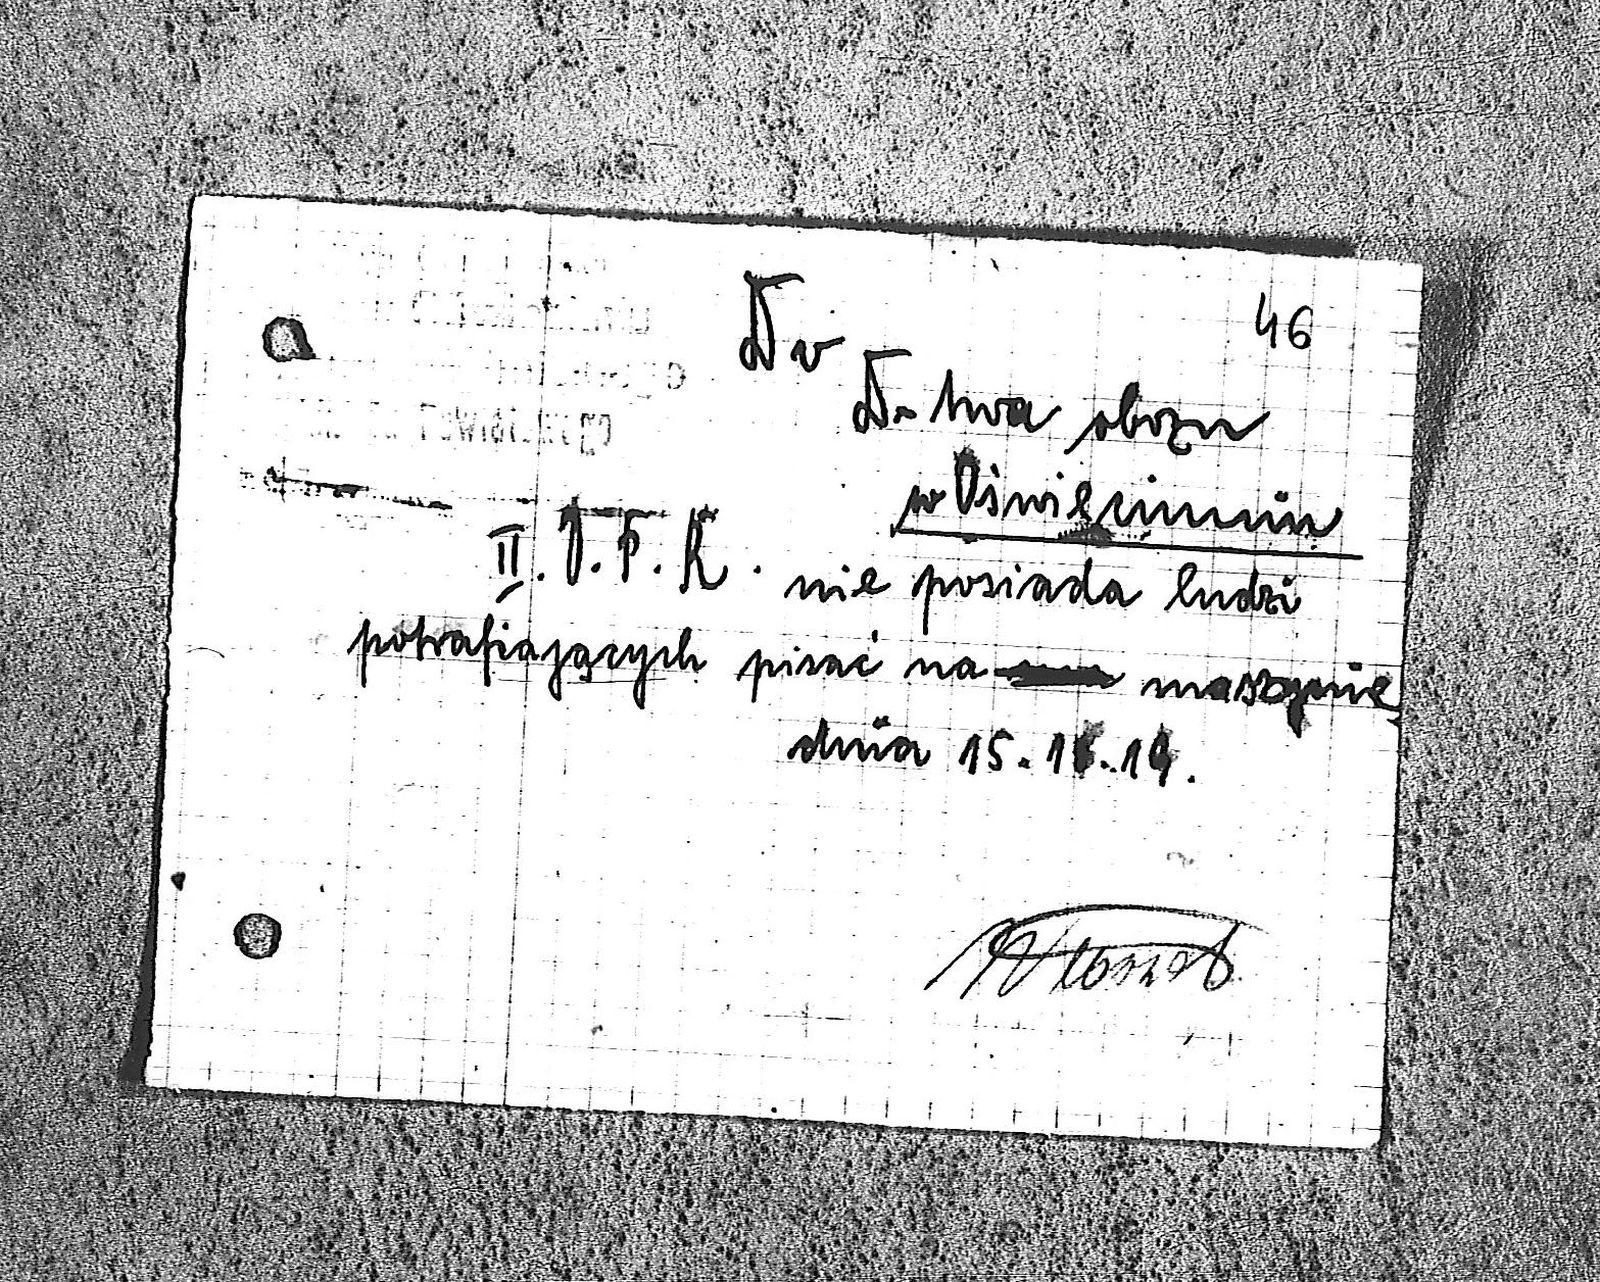 46
Do
D-twa obozu
w Oświęcimiu
II. J. P. K. nie posiada ludzi
potrafiających pisać na maszynie
dnia 15.